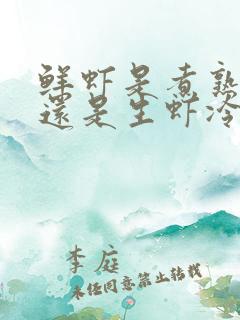 鲜虾是煮熟
還是生虾冷
李庭
未经同意禁止转载